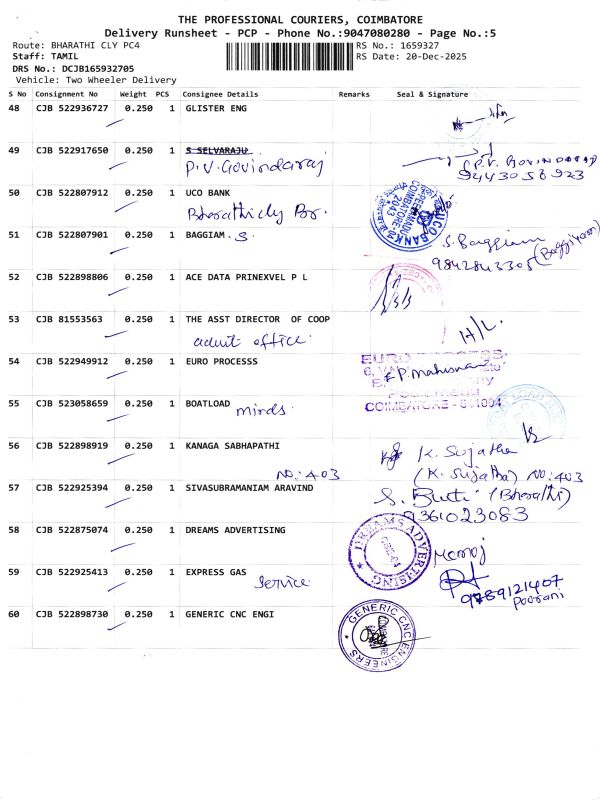 THE PROFESSIONAL COURIERS, COIMBATORE
Delivery Runsheet - PCP - Phone No.:9047080280 - Page No.:5
Route: BHARATHI CLY PC4 RS No.: 1659327
Staff: TAMIL RS Date: 20-Dec-2025
DRS No.: DCJB165932705
Vehicle: Two Wheeler Delivery
S No Consignment No Weight PCS Consignee Details Remarks Seal & Signature
48 CJB 522936727 0.250 1 GLISTER ENG
49 CJB 522917650 0.250 1 S SELVARAJU
P.V. Govindaraj (P.V. GOVINDARAJ
9443058923
50 CJB 522807912 0.250 1 UCO BANK
Bharathicly Br. UCO BANK COIMBATORE 2043
51 CJB 522807901 0.250 1 BAGGIAM . S. S. Baggiam (Baggiyam)
9842843305
52 CJB 522898806 0.250 1 ACE DATA PRINEXVEL P L
53 CJB 81553563 0.250 1 THE ASST DIRECTOR OF COOP
audit office. H/L.
54 CJB 522949912 0.250 1 EURO PROCESSS EURO
COIMBATORE - 641004
55 CJB 523058659 0.250 1 BOATLOAD minds.
56 CJB 522898919 0.250 1 KANAGA SABHAPATHI K. Sujatha
NO: 403 (K. Sujatha) NO: 403
57 CJB 522925394 0.250 1 SIVASUBRAMANIAM ARAVIND (Bharathi)
9361023083
58 CJB 522875074 0.250 1 DREAMS ADVERTISING DREAMS ADVERTISING
Manoj
59 CJB 522925413 0.250 1 EXPRESS GAS Service
9789121407
Poorani
60 CJB 522898730 0.250 1 GENERIC CNC ENGI GENERIC CNC ENGINEERS